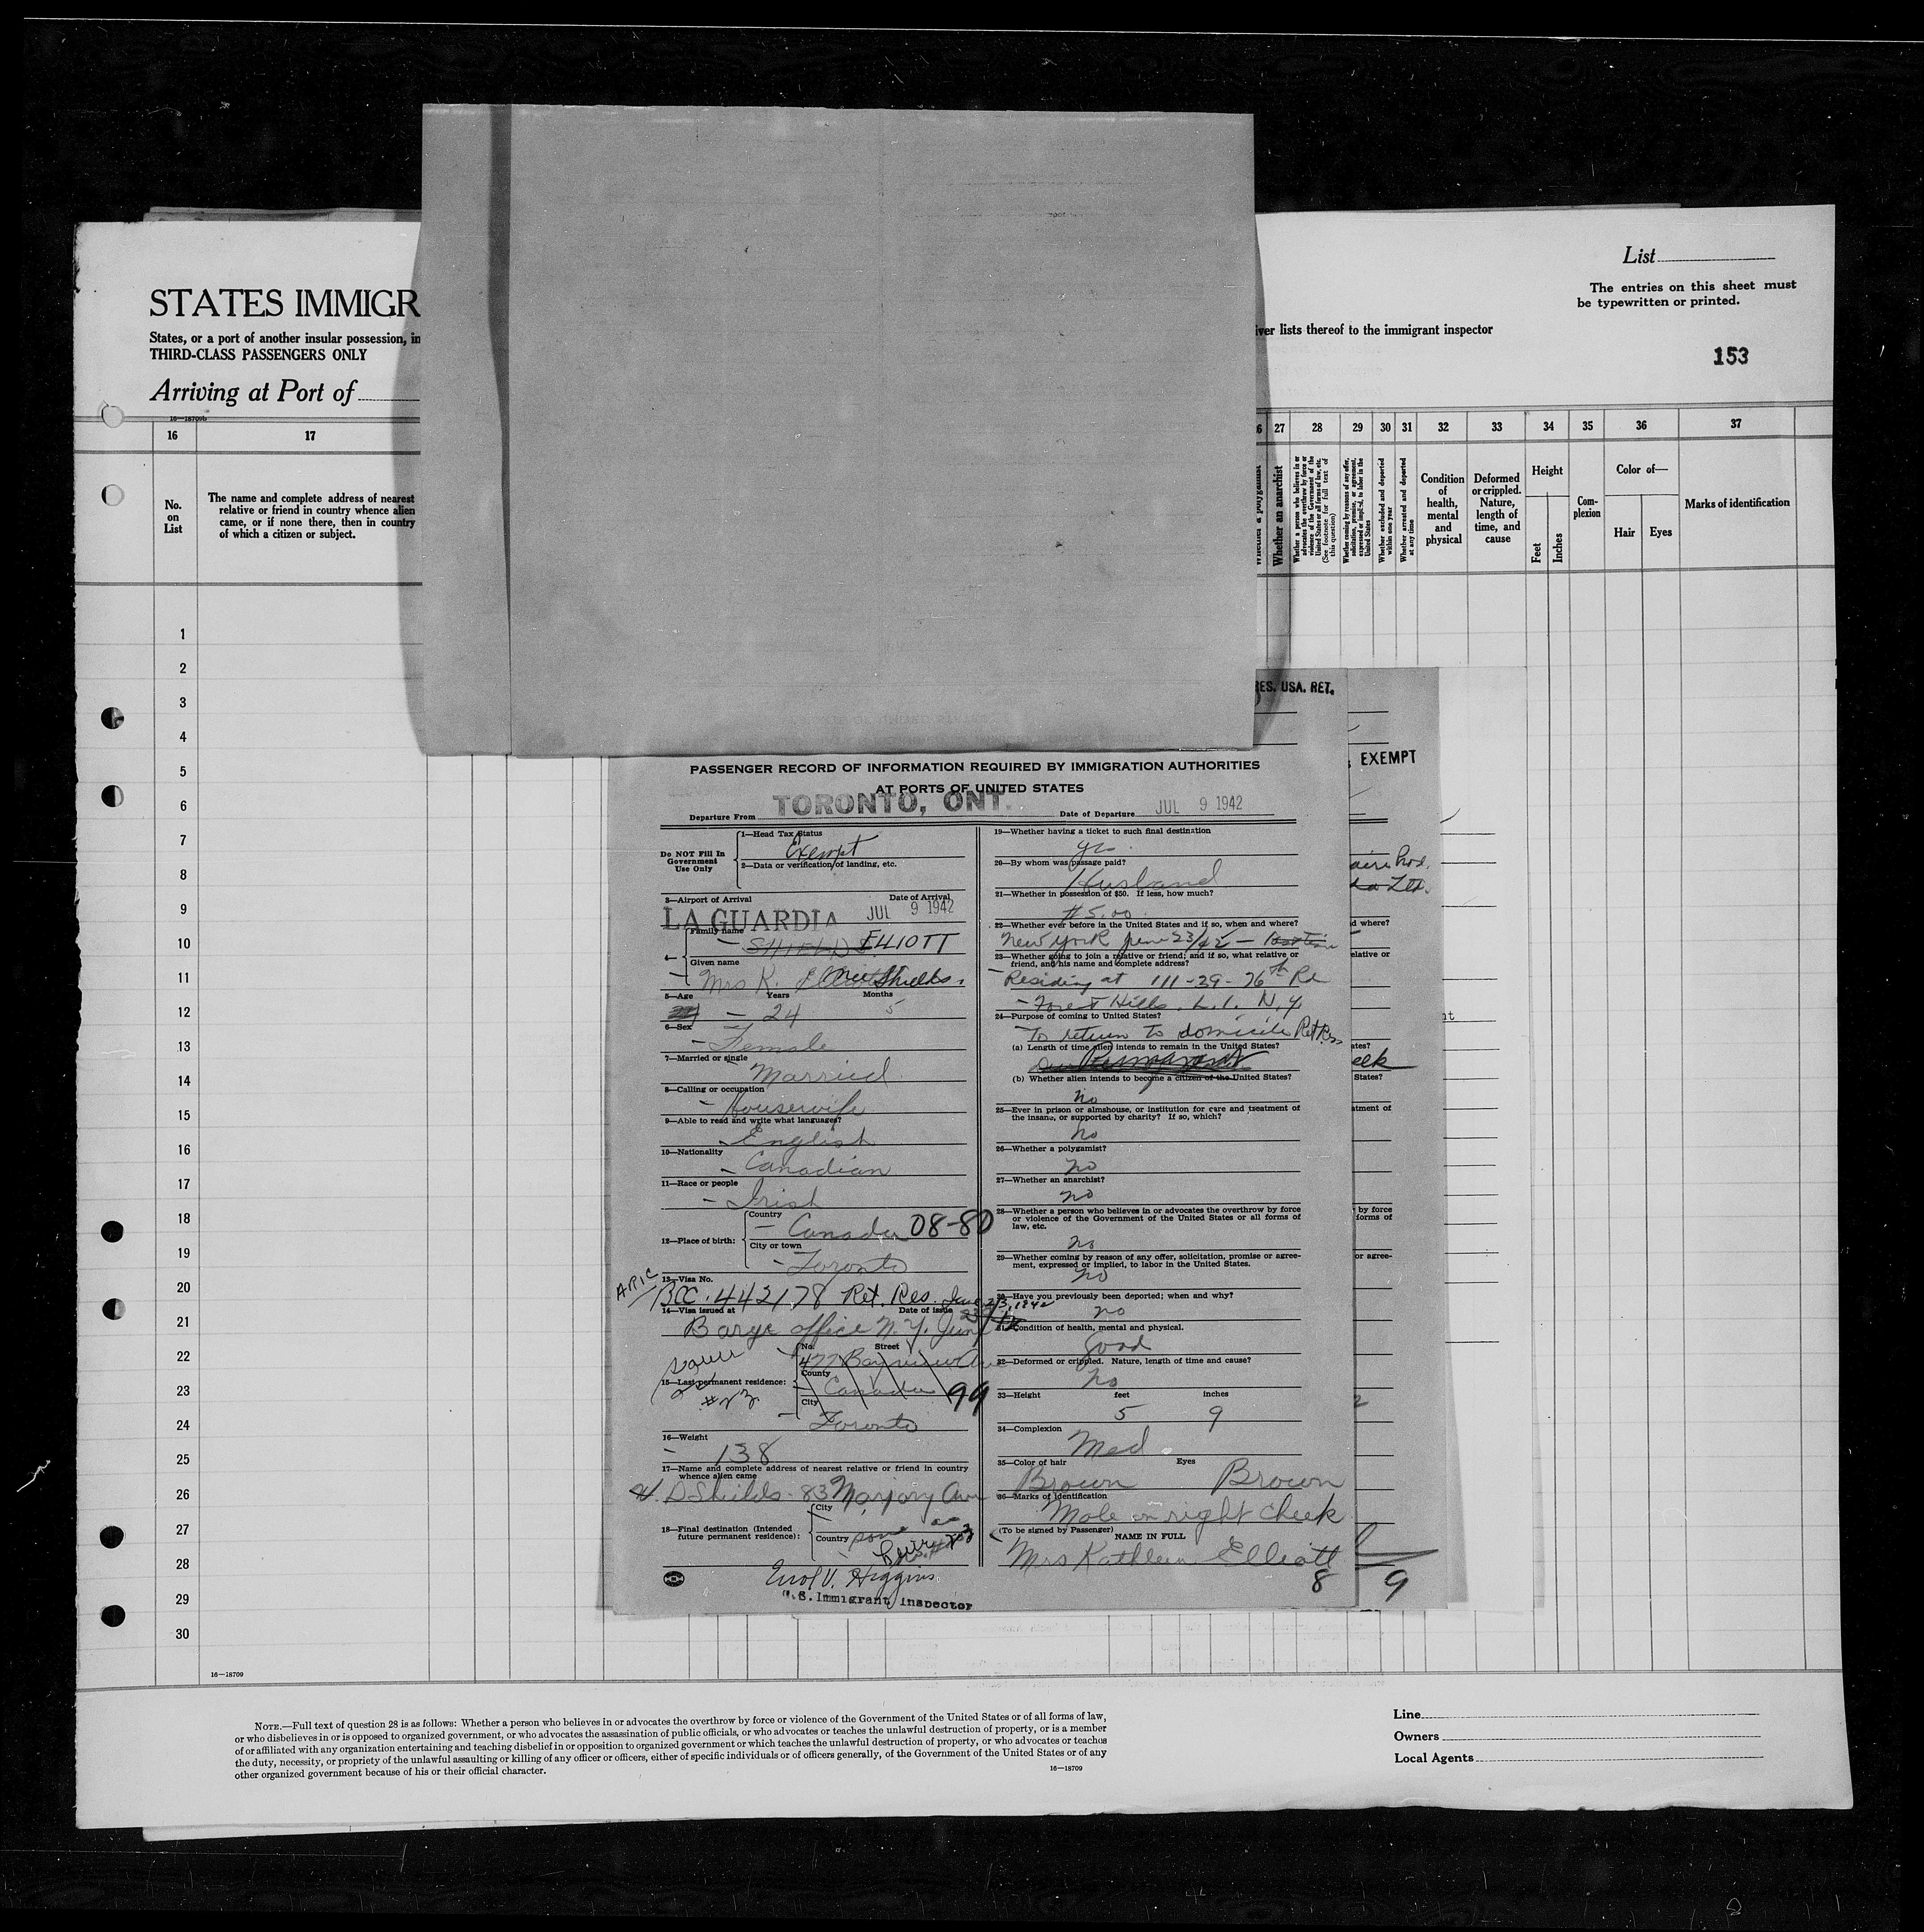 List
The entries on this sheet must
be typewritten or printed.
STATES IMMIGR
States, or a port of another insular possession, in
THIRD-CLASS PASSENGERS ONLY
iver lists thereof to the immigrant inspector
153
Arriving at Port of
16—18709b
16 17 6 27 28 29 30 31 32 33 34 35 36 37
No.
on
List
The name and complete address of nearest
relative or friend in country whence alien
came, or if none there, then in country
of which a citizen or subject.
Whether a polygamist
Whether an anarchist
Whether a person who believes in or
advocates the overthrow by force or
violence of the Government of the
United States or all forms of law, etc.
(See footnote for full text of
this question)
Whether coming by reason of any offer,
solicitation, promise, or agreement,
expressed or implied, to labor in the
United States
Whether excluded and deported
within one year
Whether arrested and deported
at any time
Condition
of
health,
mental
and
physical
Deformed
or crippled.
Nature,
length of
time, and
cause
Height
Feet
Inches
Com-
plexion
Color of—
Hair Eyes
Marks of identification
1
2
3
4
5
6
7
8
9
10
11
12
13
14
15
16
17
18
19
20
21
22
23
24
25
26
27
28
29
30
RES. USA. RET.
EXEMPT
PASSENGER RECORD OF INFORMATION REQUIRED BY IMMIGRATION AUTHORITIES
AT PORTS OF UNITED STATES
Departure From TORONTO, ONT. Date of Departure JUL 9 1942
Do NOT Fill In
Government
Use Only
1—Head Tax Status
Exempt
2—Data or verification of landing, etc.
3—Airport of Arrival Date of Arrival
LA GUARDIA JUL 9 1942
4—
Family name
SHIELDS ELLIOTT
Given name
Mrs K. Shields
5—Age Years Months
24 5
6—Sex
Female
7—Married or single
Married
8—Calling or occupation
Housewife
9—Able to read and write what languages?
English
10—Nationality
Canadian
11—Race or people
Irish
12—Place of birth:
Country
Canada 08-80
City or town
Toronto
13—Visa No.
BCC. 442178 Ret. Res. June 23, 1942
14—Visa issued at Date of issue
Barge office N.Y. June
15—Last permanent residence:
same
as
#23
No. Street
477 Bayview Ave
County
Canada 99
City
Toronto
16—Weight
138
17—Name and complete address of nearest relative or friend in country
whence alien came
D Shields - 83 Marjory Ave
18—Final destination (Intended
future permanent residence):
City
Country
same as
Errol V. Higgins
U.S. Immigrant Inspector
19—Whether having a ticket to such final destination
yes
20—By whom was passage paid?
Husband
21—Whether in possession of $50. If less, how much?
$5.00
22—Whether ever before in the United States and if so, when and where?
New York June 23/42 —
23—Whether going to join a relative or friend; and if so, what relative or
friend, and his name and complete address?
Residing at 111-39-76th Rd
Forest Hills. L.I. N.Y
24—Purpose of coming to United States?
To return to domicile Ret Res
(a) Length of time alien intends to remain in the United States?
Permanent
(b) Whether alien intends to become a citizen of the United States?
no
25—Ever in prison or almshouse, or institution for care and tseatment of
the insane, or supported by charity? If so, which?
no
26—Whether a polygamist?
no
27—Whether an anarchist?
no
28—Whether a person who believes in or advocates the overthrow by force
or violence of the Government of the United States or all forms of
law, etc.
no
29—Whether coming by reason of any offer, solicitation, promise or agree-
ment, expressed or implied, to labor in the United States.
no
30—Have you previously been deported; when and why?
no
31—Condition of health, mental and physical.
Good
32—Deformed or crippled. Nature, length of time and cause?
no
33—Height feet inches
5 9
34—Complexion
Med.
35—Color of hair Eyes
Brown Brown
36—Marks of identification
Mole on right cheek
(To be signed by Passenger) NAME IN FULL
Mrs Kathleen Elliott
8
9
d where?
elative or
ates?
eek
States?
atment of
by force
forms of
or agree-
16—18709
NOTE.—Full text of question 28 is as follows: Whether a person who believes in or advocates the overthrow by force or violence of the Government of the United States or of all forms of law,
or who disbelieves in or is opposed to organized government, or who advocates the assassination of public officials, or who advocates or teaches the unlawful destruction of property, or is a member
of or affiliated with any organization entertaining and teaching disbelief in or opposition to organized government or which teaches the unlawful destruction of property, or who advocates or teaches
the duty, necessity, or propriety of the unlawful assaulting or killing of any officer or officers, either of specific individuals or of officers generally, of the Government of the United States or of any
other organized government because of his or their official character.
16—18709
Line
Owners
Local Agents